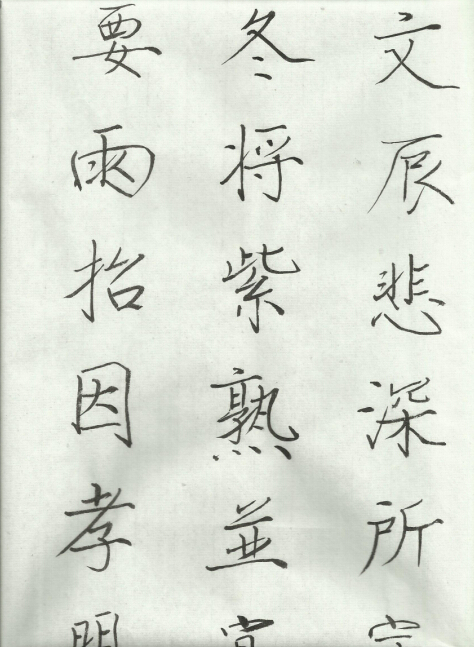 文辰悲深所
冬将紫熟並
要雨抬因孝明